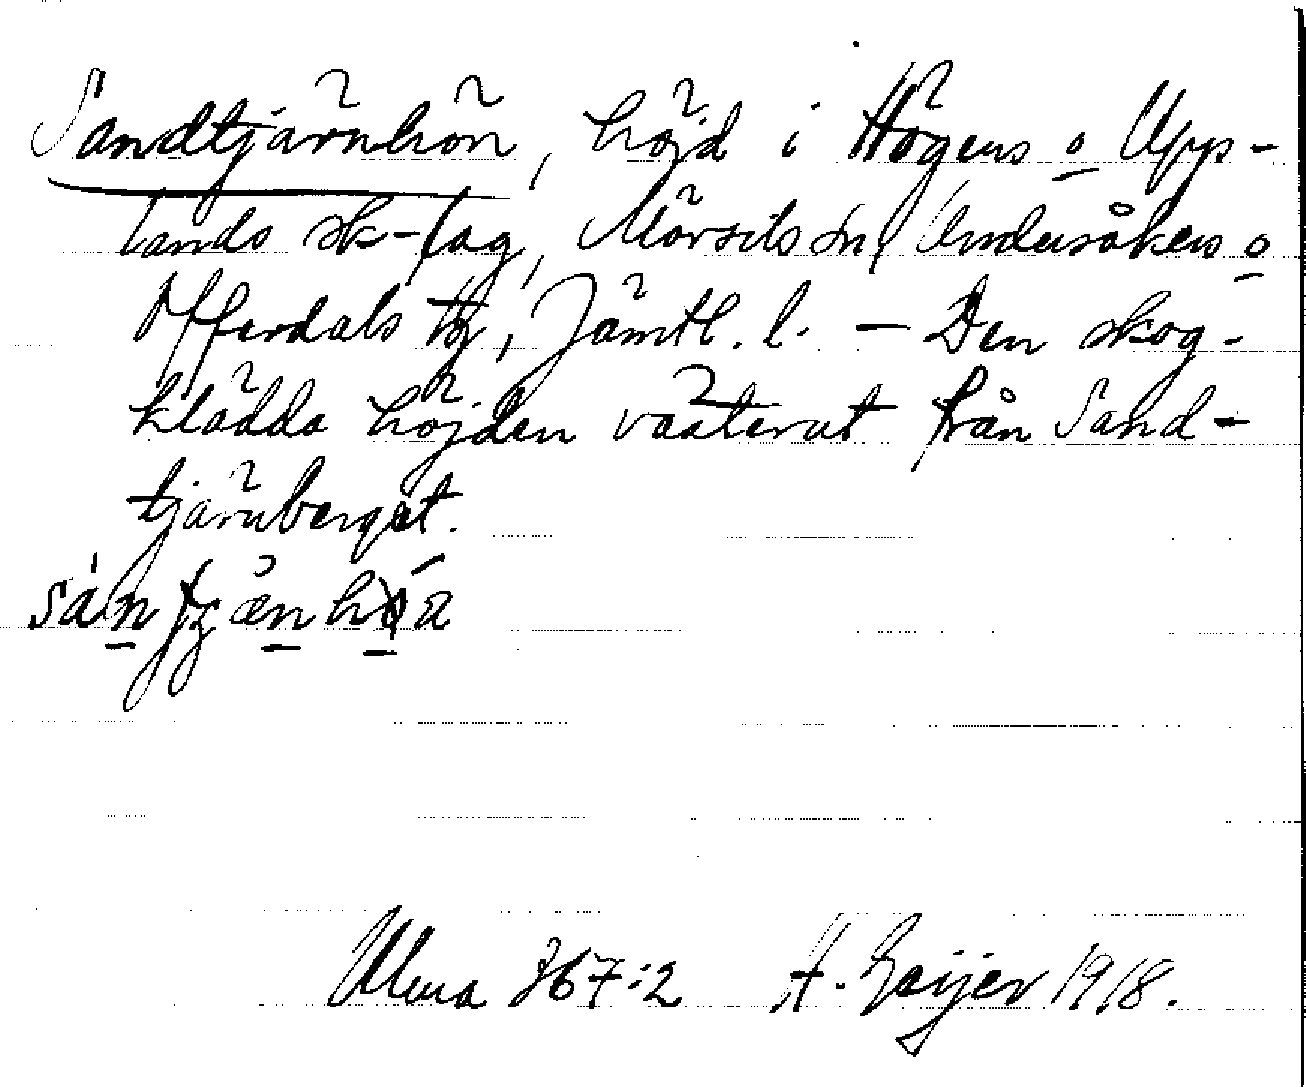 Sandtjärnhön, höjd i Högens o Upp-
lands sk-lag, Mörsils sn, Undersåkers o
Offerdals tg, Jämtl. l. – Den skog-
klädda höjden västerut från Sand-
tjärnberget.
Ulma 367:2 H. Geijer 1918.